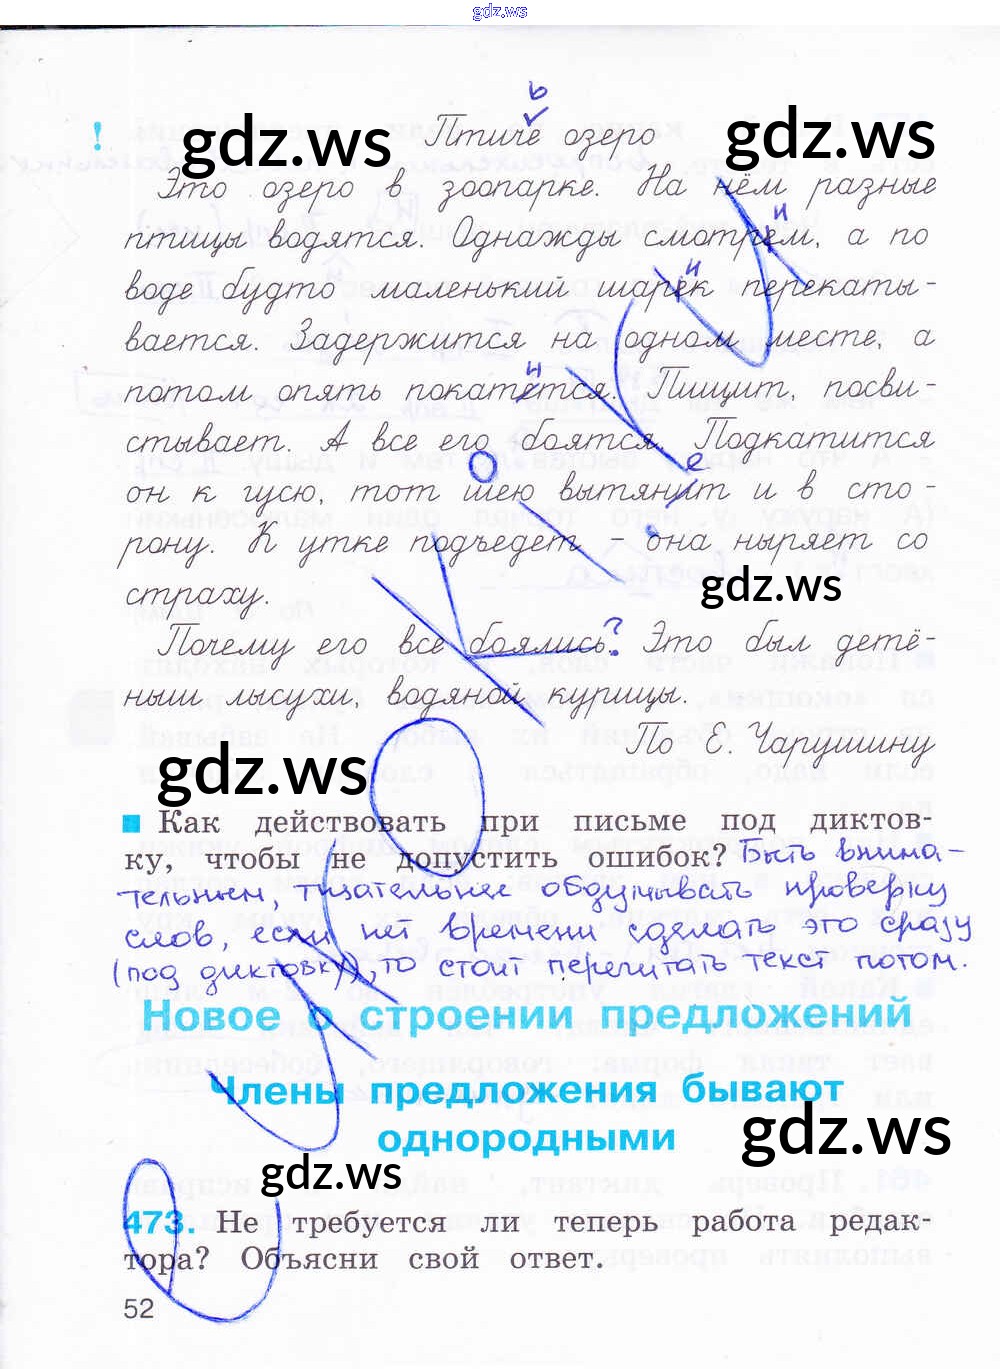 gdz.ws
ь
! Птиче озеро
gdz.ws gdz.ws
Это озеро в зоопарке. На нём разные
птицы водятся. Однажды смотрем, а по
и
воде будто маленький шарек перекаты-
и
вается. Задержится на одном месте, а
потом опять покатется. Пищит, посви-
и
стывает. А все его боятся. Подкатится
он к гусю, тот шею вытянит и в сто-
е
рону. К утке подъедет – она ныряет со
страху.
gdz.ws
Почему его все боялись? Это был детё-
ныш лысухи, водяной курицы.
По Е. Чарушину
gdz.ws
Как действовать при письме под диктов-
ку, чтобы не допустить ошибок? Быть внима-
тельным, тщательнее обдумывать проверку
слов, если нет времени сделать это сразу
(под диктовку), то стоит перечитать текст потом.
Новое о строении предложений
Члены предложения бывают
однородными
gdz.ws
gdz.ws
473. Не требуется ли теперь работа редак-
тора? Объясни свой ответ.
52